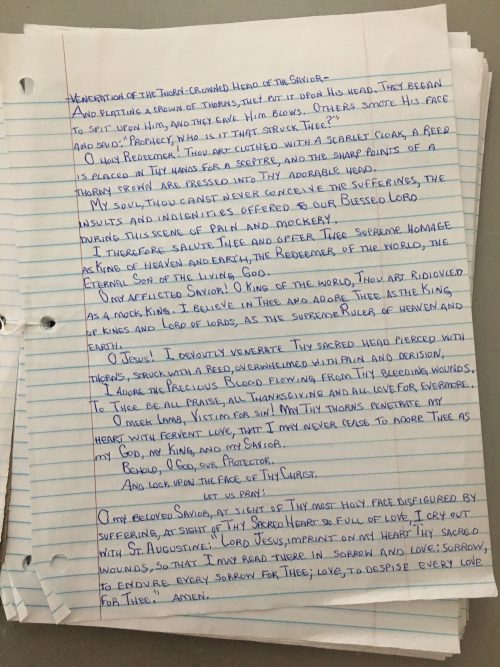 -VENERATION OF THE THORN-CROWNED HEAD OF THE SAVIOR-
AND PLATTING A CROWN OF THORNS, THEY PUT IT UPON HIS HEAD. THEY BEGAN
TO SPIT UPON HIM, AND THEY GAVE HIM BLOWS. OTHERS SMOTE HIS FACE
AND SAID: "PROPHECY, WHO IS IT THAT STRUCK THEE?"
O HOLY REDEEMER! THOU ART CLOTHED WITH A SCARLET CLOAK, A REED
IS PLACED IN THY HANDS FOR A SCEPTRE, AND THE SHARP POINTS OF A
THORNY CROWN ARE PRESSED INTO THY ADORABLE HEAD.
MY SOUL, THOU CANST NEVER CONCEIVE THE SUFFERINGS, THE
INSULTS AND INDIGNITIES OFFERED TO OUR BLESSED LORD
DURING THIS SCENE OF PAIN AND MOCKERY.
I THEREFORE SALUTE THEE AND OFFER THEE SUPREME HOMAGE
AS KING OF HEAVEN AND EARTH, THE REDEEMER OF THE WORLD, THE
ETERNAL SON OF THE LIVING GOD.
O MY AFFLICTED SAVIOR! O KING OF THE WORLD, THOU ART RIDICULED
AS A MOCK KING. I BELIEVE IN THEE AND ADORE THEE AS THE KING
OF KINGS AND LORD OF LORDS, AS THE SUPREME RULER OF HEAVEN AND
EARTH.
O JESUS! I DEVOUTLY VENERATE THY SACRED HEAD PIERCED WITH
THORNS, STRUCK WITH A REED, OVERWHELMED WITH PAIN AND DERISION,
I ADORE THE PRECIOUS BLOOD FLOWING FROM THY BLEEDING WOUNDS.
TO THEE BE ALL PRAISE, ALL THANKSGIVING AND ALL LOVE FOR EVERMORE.
O MEEK LAMB, VICTIM FOR SIN! MAY THY THORNS PENETRATE MY
HEART WITH FERVENT LOVE, THAT I MAY NEVER CEASE TO ADORE THEE AS
MY GOD, MY KING, AND MY SAVIOR.
BEHOLD, O GOD, OUR PROTECTOR,
AND LOOK UPON THE FACE OF THY CHRIST.
LET US PRAY:
O MY BELOVED SAVIOR, AT SIGHT OF THY MOST HOLY FACE DISFIGURED BY
SUFFERING, AT SIGHT OF THY SACRED HEART SO FULL OF LOVE, I CRY OUT
WITH ST. AUGUSTINE: "LORD JESUS, IMPRINT ON MY HEART THY SACRED
WOUNDS, SO THAT I MAY READ THERE IN SORROW AND LOVE: SORROW,
TO ENDURE EVERY SORROW FOR THEE; LOVE, TO DESPISE EVERY LOVE
FOR THEE." AMEN.